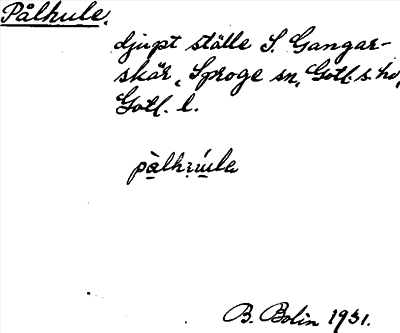 Pålhule.
djupt ställe S. Gangar-
skär, Sproge sn, Gotl. s. hd,
Gotl. l.
B. Bolin 1931.